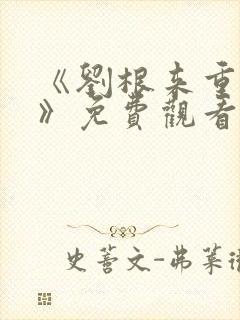 《劉根来重
》免費觀看
史蒼文-弗莱